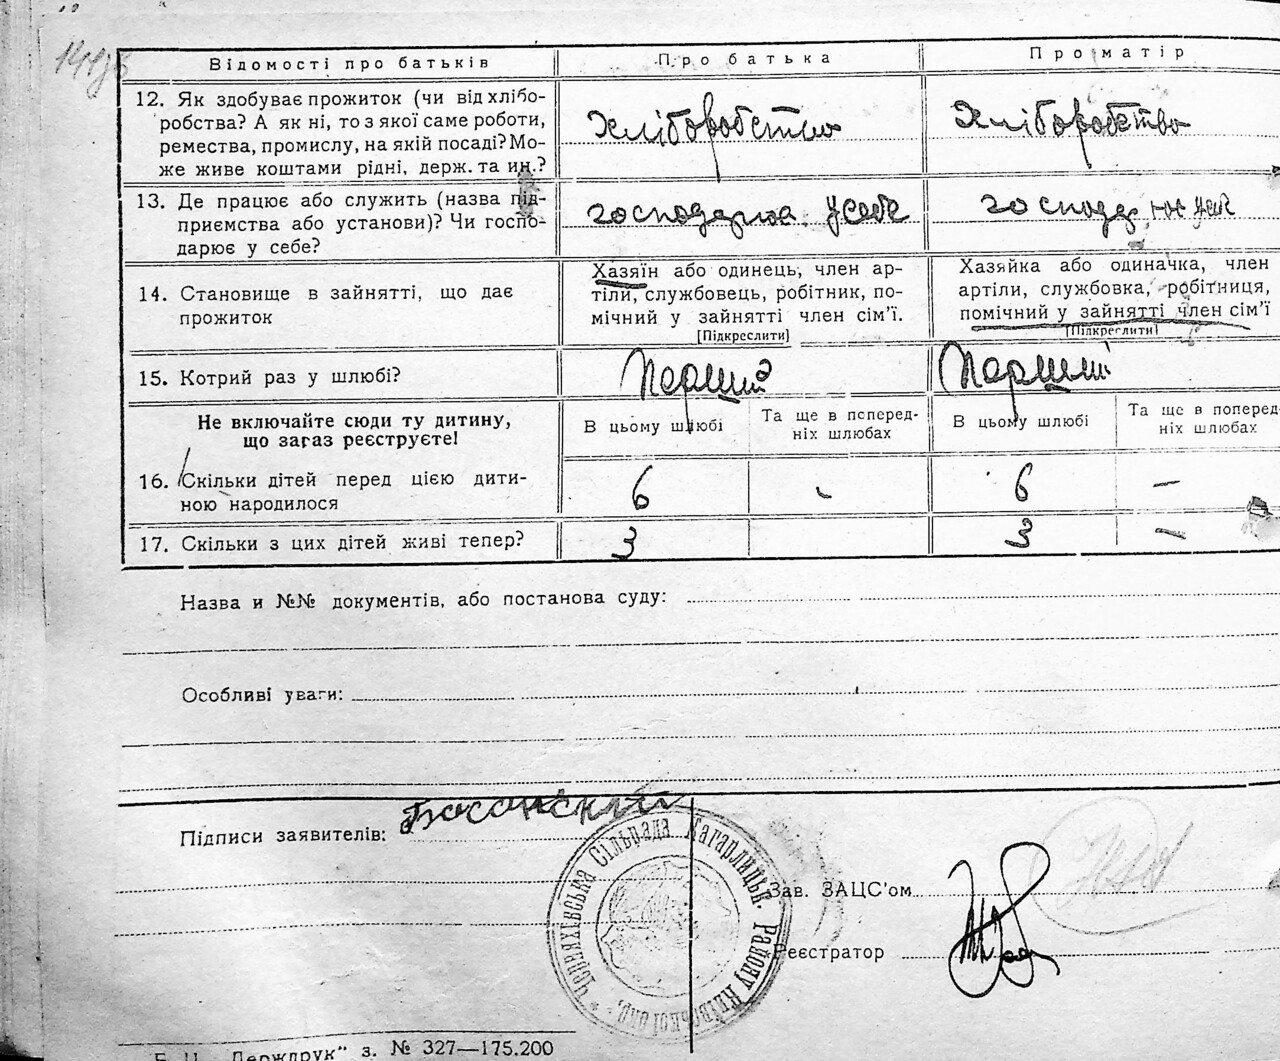 Відомості про батьків
Про батька
Про матір
12. Як здобуває прожиток (чи від хлібо-
робства? А як ні, то з якої саме роботи,
ремества, промислу, на якій посаді? Мо-
же живе коштами рідні, держ. та ин.?
хліборобство
хліборобство
13. Де працює або служить (назва під-
приємства або установи)? Чи госпо-
дарює у себе?
господарює у себе
14. Становище в зайнятті, що дає
прожиток
Хазяїн або одинець, член ар-
тіли, службовець, робітник, по-
мічний у зайнятті член сім'ї.
[Підкреслити]
Хазяйка або одиначка, член
артіли, службовка, робітниця,
помічний у зайнятті член сім'ї
[Підкреслити]
15. Котрий раз у шлюбі?
Перший
Перший
Не включайте сюди ту дитину,
що зараз реєструєте!
В цьому шлюбі
Та ще в поперед-
ніх шлюбах
В цьому шлюбі
Та ще в поперед-
ніх шлюбах
16. Скільки дітей перед цією дити-
ною народилося
6
-
6
—
17. Скільки з цих дітей живі тепер?
3
3
—
Назва и №№ документів, або постанова суду:
Особливі уваги:
Підписи заявителів:
Черняхівська Сільрада Кагарлицьк. Району Київської окр.
Зав. ЗАЦС'ом
Реєстратор
Держдрук" з. № 327—175.200